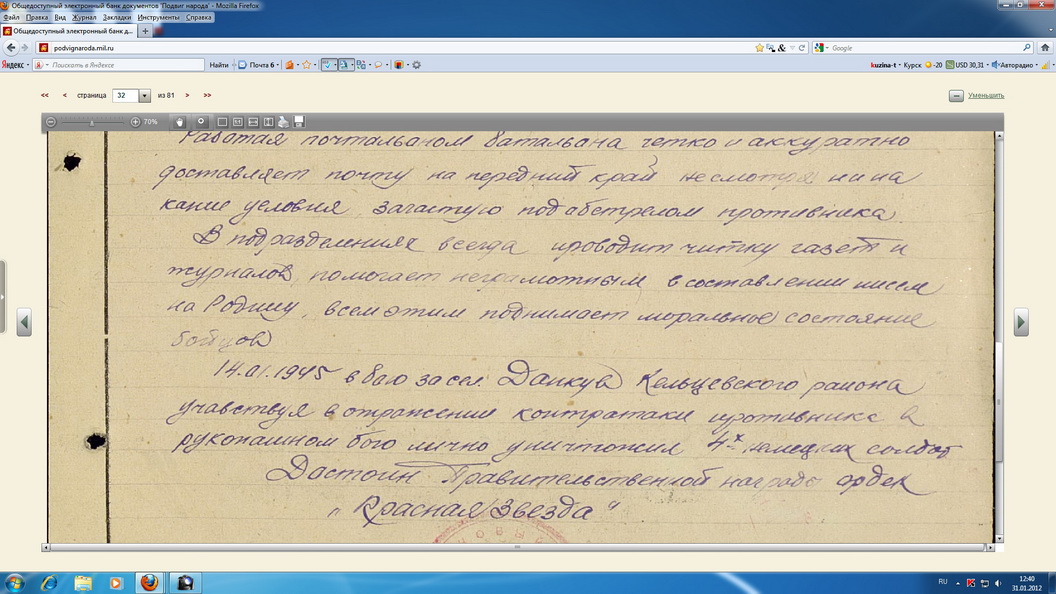 Общедоступный электронный банк документов 'Подвиг народа' - Mozilla Firefox
Файл Правка Вид Журнал Закладки Инструменты Справка
Общедоступный электронный банк д...
podvignaroda.mil.ru
Google
Яндекс
Поискать в Яндексе
Найти
Почта 6
kuzina-t
Курск
-20
USD 30,31
Авторадио
<< < страница 32 из 81 > >>
Уменьшить
70%
Работая почтальоном батальона четко и аккуратно
доставляет почту на передний край несмотря ни на
какие условия, зачастую под абстрелом противника.
В подразделениях всегда проводит читку газет и
журналов, помогает неграмотным в составлении писем
на Родину, всем этим поднимает моральное состояние
бойцов
14.01.1945 в бою за сел. Кельцевского района
учавствуя в отражении контратаки противника в
рукопашном бою лично уничтожил 4х немецких солдат
Достоин Правительственной награды орден
"Красная Звезда"
RU
12:40
31.01.2012